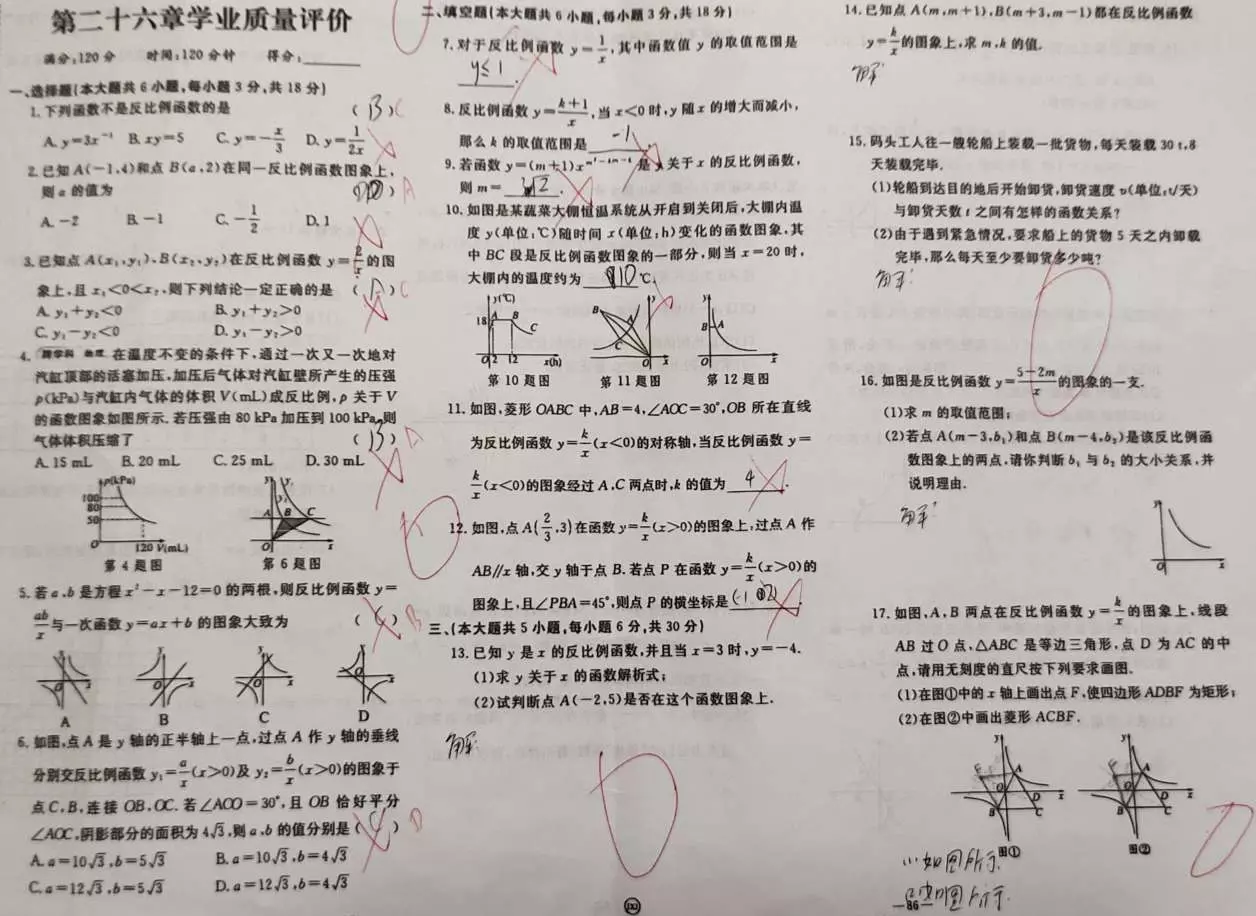 第二十六章学业质量评价
满分:120分 时间:120分钟 得分:
一、选择题(本大题共6小题,每小题3分,共18分)
1.下列函数不是反比例函数的是 ( B ) C
A. y=3x⁻¹ B. xy=5 C. y=-x/3 D. y=1/2x
2.已知A(-1,4)和点B(a,2)在同一反比例函数图象上,
则a的值为 ( D ) A
A. -2 B. -1 C. -1/2 D. 1
3.已知点A(x₁,y₁),B(x₂,y₂)在反比例函数y=2/x的图
象上,且x₁<0<x₂,则下列结论一定正确的是 ( A ) C
A. y₁+y₂<0 B. y₁+y₂>0
C. y₁-y₂<0 D. y₁-y₂>0
4. 跨学科 物理 在温度不变的条件下,通过一次又一次地对
汽缸顶部的活塞加压,加压后气体对汽缸壁所产生的压强
p(kPa)与汽缸内气体的体积V(mL)成反比例,p关于V
的函数图象如图所示.若压强由80 kPa加压到100 kPa,则
气体体积压缩了 ( B ) A
A. 15 mL B. 20 mL C. 25 mL D. 30 mL
p(kPa)
100
80
50
O 120 V(mL)
第4题图
y y₂
y₁
A B C
O x
第6题图
5.若a,b是方程x²-x-12=0的两根,则反比例函数y=
ab/x与一次函数y=ax+b的图象大致为 ( C ) B
A B C D
6.如图,点A是y轴的正半轴上一点,过点A作y轴的垂线
分别交反比例函数y₁=a/x(x>0)及y₂=b/x(x>0)的图象于
点C,B,连接OB,OC.若∠ACO=30°,且OB恰好平分
∠AOC,阴影部分的面积为4√3,则a,b的值分别是 ( C ) D
A. a=10√3,b=5√3 B. a=10√3,b=4√3
C. a=12√3,b=5√3 D. a=12√3,b=4√3
二、填空题(本大题共6小题,每小题3分,共18分)
7.对于反比例函数y=1/x,其中函数值y的取值范围是
y≤1.
8.反比例函数y=k+1/x,当x<0时,y随x的增大而减小,
那么k的取值范围是 -1
9.若函数y=(m+1)x 是y关于x的反比例函数,
则m= 2.
10.如图是某蔬菜大棚恒温系统从开启到关闭后,大棚内温
度y(单位,℃)随时间x(单位:h)变化的函数图象,其
中BC段是反比例函数图象的一部分,则当x=20时,
大棚内的温度约为 10 ℃.
y(℃)
18 A B
C
O 2 12 x(h)
第10题图
B y
A
C
O x
第11题图
y
B A
O x
第12题图
11.如图,菱形OABC中,AB=4,∠AOC=30°,OB所在直线
为反比例函数y=k/x(x<0)的对称轴,当反比例函数y=
k/x(x<0)的图象经过A,C两点时,k的值为 4.
12.如图,点A(2/3,3)在函数y=k/x(x>0)的图象上,过点A作
AB∥x轴,交y轴于点B.若点P在函数y=k/x(x>0)的
图象上,且∠PBA=45°,则点P的横坐标是
三、(本大题共5小题,每小题6分,共30分)
13.已知y是x的反比例函数,并且当x=3时,y=-4.
(1)求y关于x的函数解析式;
(2)试判断点A(-2,5)是否在这个函数图象上.
解:
14.已知点A(m,m+1),B(m+3,m-1)都在反比例函数
y=k/x的图象上,求m,k的值.
解:
15.码头工人往一艘轮船上装载一批货物,每天装载30 t,8
天装载完毕.
(1)轮船到达目的地后开始卸货,卸货速度v(单位:t/天)
与卸货天数t之间有怎样的函数关系?
(2)由于遇到紧急情况,要求船上的货物5天之内卸载
完毕,那么每天至少要卸货多少吨?
解:
16.如图是反比例函数y=5-2m/x的图象的一支.
(1)求m的取值范围;
(2)若点A(m-3,b₁)和点B(m-4,b₂)是该反比例函
数图象上的两点,请你判断b₁与b₂的大小关系,并
说明理由.
解:
y
O x
17.如图,A,B两点在反比例函数y=k/x的图象上,线段
AB过O点,△ABC是等边三角形,点D为AC的中
点,请用无刻度的直尺按下列要求画图.
(1)在图①中的x轴上画出点F,使四边形ADBF为矩形;
(2)在图②中画出菱形ACBF.
y A O D x B C
图①
y A O D x B C
图②
(1)如图所示.
(2)如图所示.
—86—